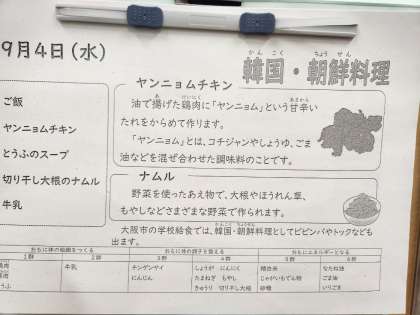 9月4日(水)
かんこく ちょうせん
韓国・朝鮮料理
ご飯
ヤンニョムチキン
とうふのスープ
切り干し大根のナムル
牛乳
ヤンニョムチキン
あ けいにく あまから
油で揚げた鶏肉に「ヤンニョム」という甘辛い
たれをからめて作ります。
「ヤンニョム」とは、コチジャンやしょうゆ、ごま
油などを混ぜ合わせた調味料のことです。
ナムル
野菜を使ったあえ物で、大根やほうれん草、
もやしなどさまざまな野菜で作られます。
かんこく ちょうせん
大阪市の学校給食では、韓国・朝鮮料理としてビビンバやトックなども
出ます。
おもに体の組織をつくる おもに体の調子を整える おもにエネルギーとなる
1群 2群 3群 4群 5群 6群
鶏肉 牛乳 チンゲンサイ しょうが にんにく 精白米 なたね油
豚肉 にんじん たまねぎ もやし じゃがいもでん粉 ごま油
うふ きゅうり 切り干し大根 砂糖 いりごま